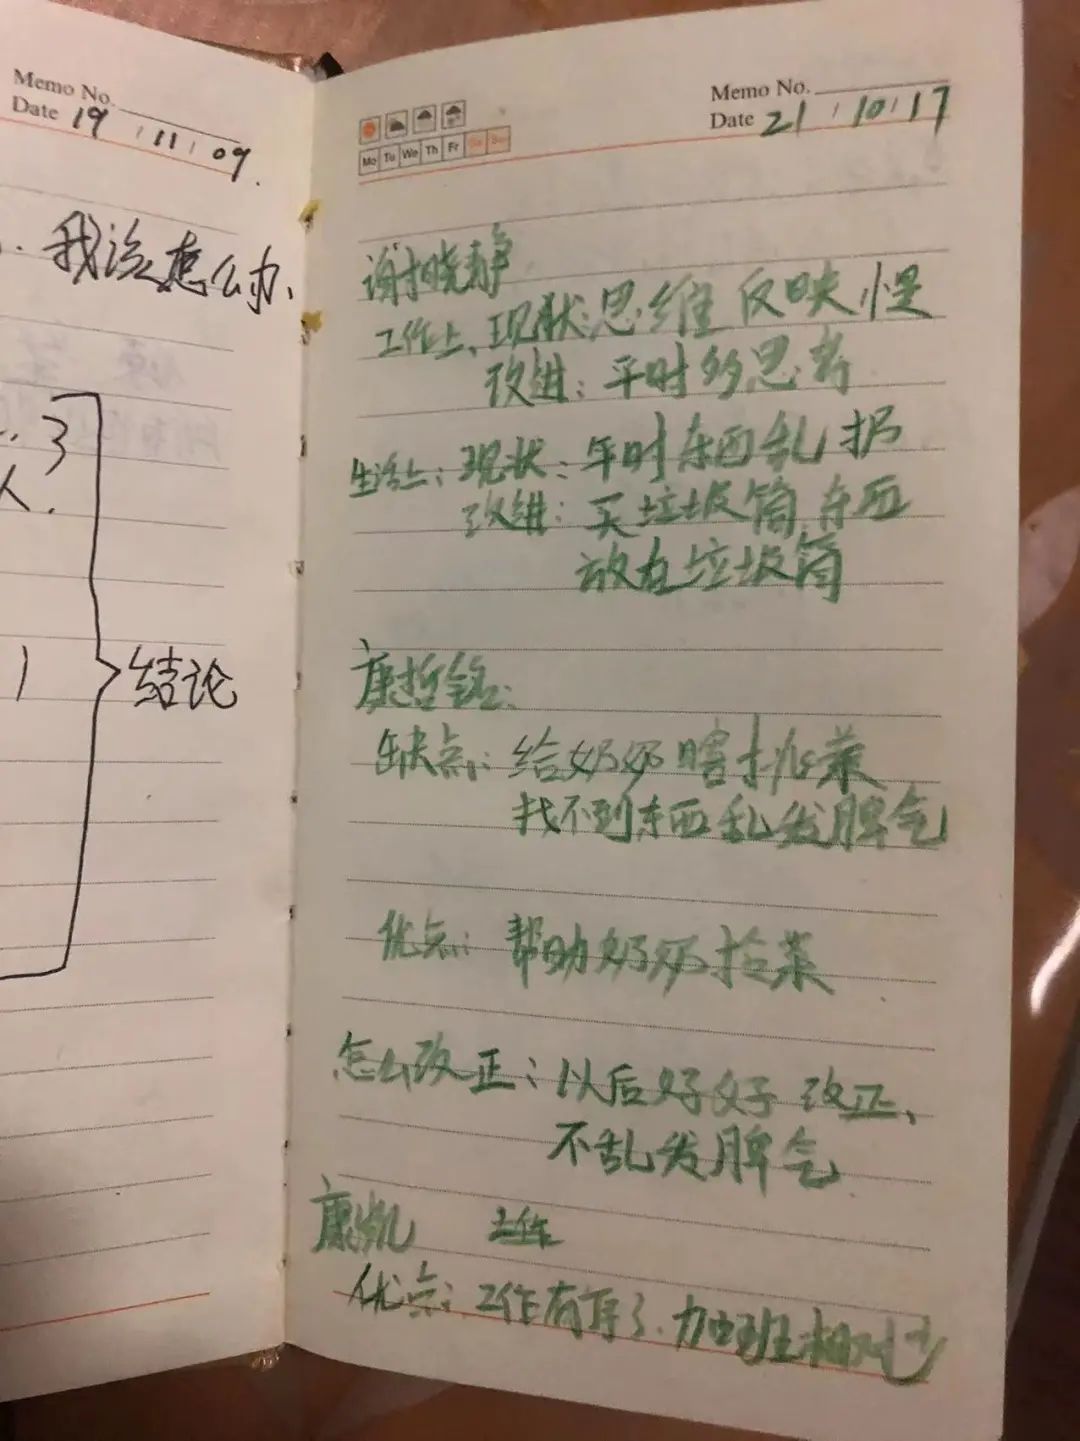 Memo No.
Date 19 / 11 / 09.
我该怎么办、
3
人.
结论
Memo No.
Date 21 / 10 / 17
Mo Tu We Th Fr Sa Su
谢晓静
工作上、现状:思维反映慢
改进: 平时多思考
生活上: 现状: 平时东西乱扔
改进: 买垃圾筒,东西
放在垃圾筒
康哲铭:
缺点: 给奶奶瞎挑菜
找不到东西乱发脾气
优点: 帮助奶奶捡菜
怎么改正: 以后好好改正、
不乱发脾气
康凯 工作
优点: 工作有序了、加班相对少